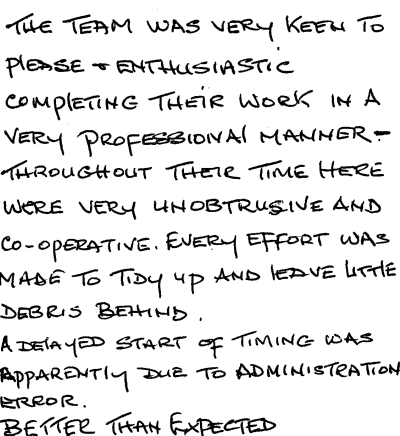 THE TEAM WAS VERY KEEN TO
PLEASE + ENTHUSIASTIC
COMPLETING THEIR WORK IN A
VERY PROFESSIONAL MANNER -
THROUGHOUT THEIR TIME HERE
WERE VERY UNOBTRUSIVE AND
CO-OPERATIVE. EVERY EFFORT WAS
MADE TO TIDY UP AND LEAVE LITTLE
DEBRIS BEHIND.
A DELAYED START OF TIMING WAS
APPARENTLY DUE TO ADMINISTRATION
ERROR.
BETTER THAN EXPECTED